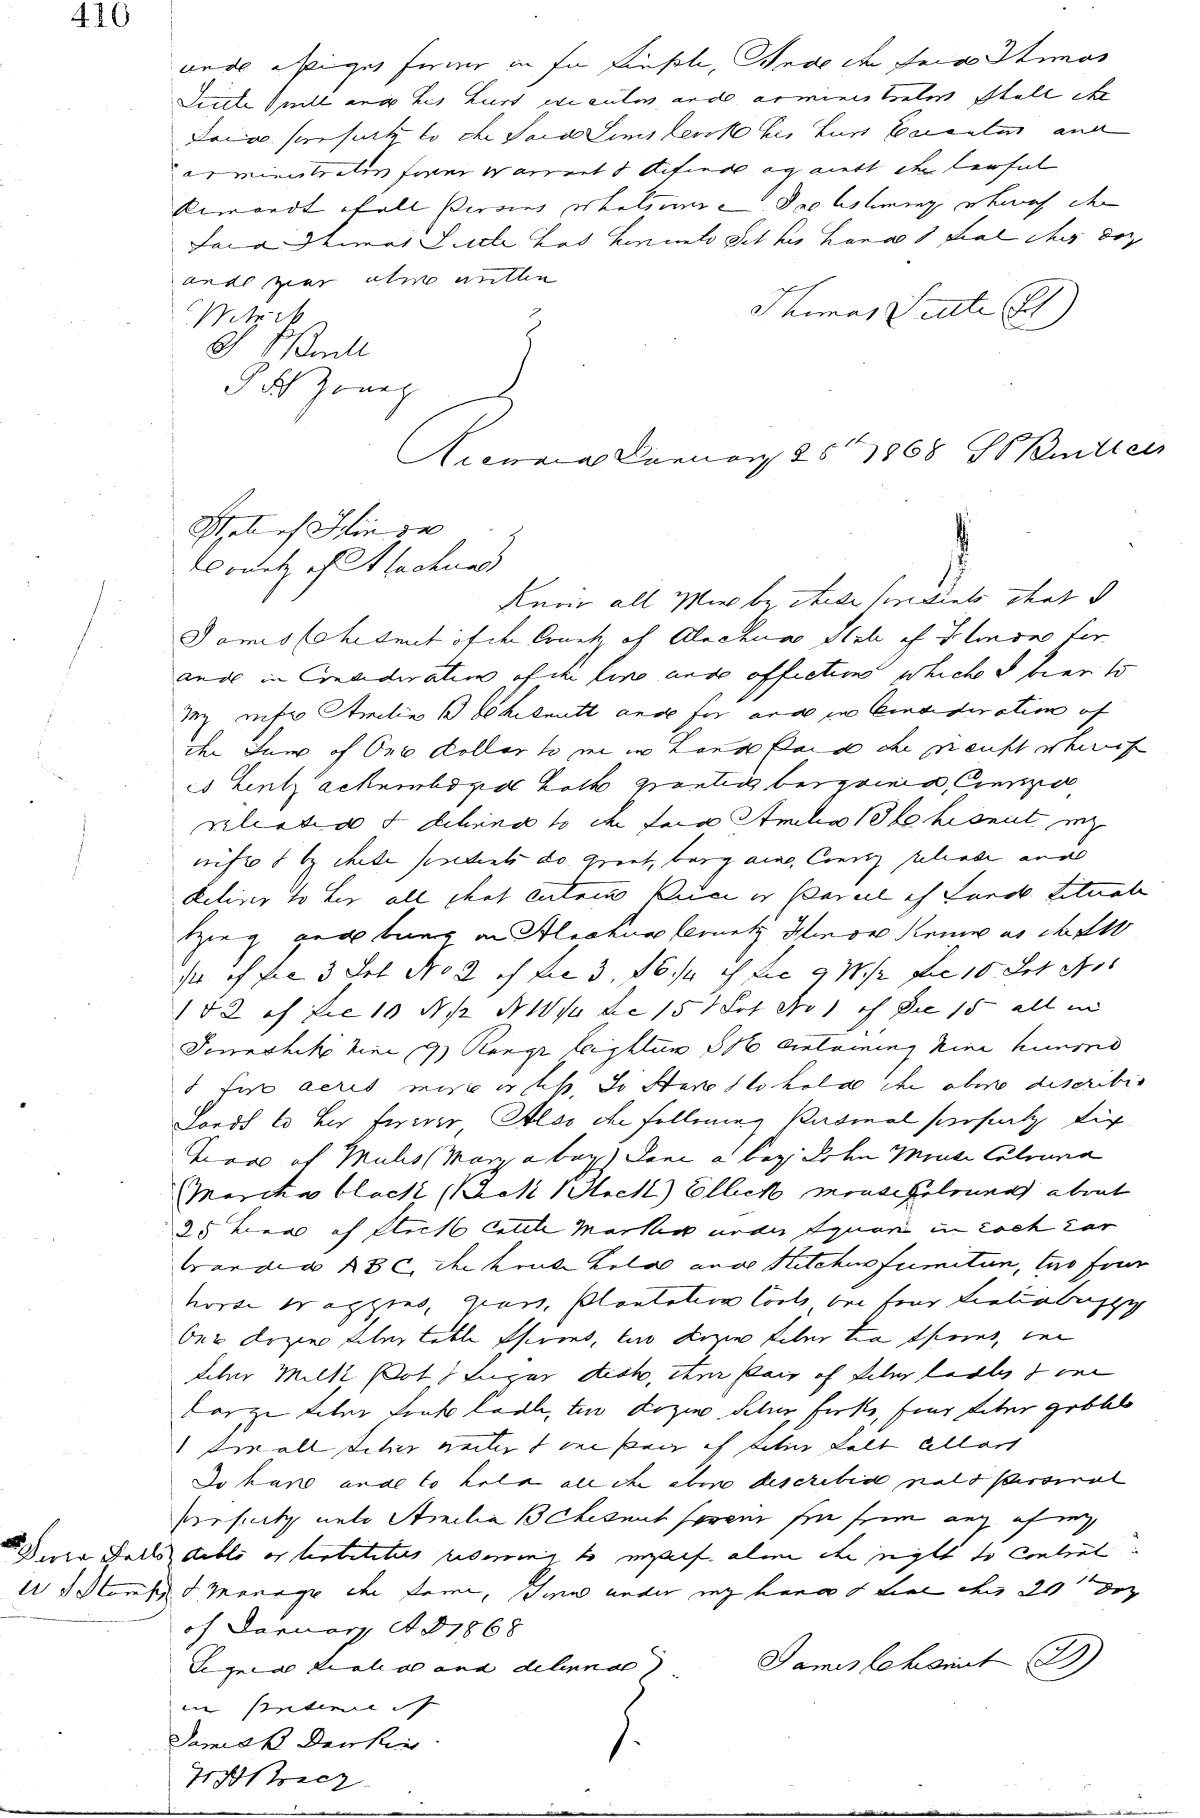 410
and assigns forever in fee simple, And the said Thomas
Tuttle will and his heirs executors and administrators shall the
said property to the said his heirs Executors and
administrators forever warrant & defend against the lawful
demands of all persons whatsoever In testimony whereof the
said Thomas Tuttle has hereunto set his hand & seal this day
and year above written
Thomas Tuttle
Witness
Young
Recorded January 25th 1868
State of Florida
County of Alachua
Know all Men by these presents that I
James Chesnut of the County of Alachua State of Florida for
and in Consideration of the love and affection which I bear to
my wife Amelia B Chesnutt and for and in Consideration of
the sum of One dollar to me in hand paid the receipt whereof
is hereby acknowledged hath granted, bargained, Conveyed,
released & delivered to the said Amelia B Chesnut my
wife & by these presents do grant, bargain, Convey release and
deliver to her all that certain piece or parcel of Land Situate
lying and being in Alachua County Florida Known as the SW
1/4 of Sec 3 Lot No 2 of Sec 3, 1/4 of Sec 9 W 1/2 Sec 10 Lot Nos
1 & 2 of Sec 10 N 1/2 NW 1/4 Sec 15 & Lot No 1 of Sec 15 all in
Township Nine (9) Range Eighteen containing Nine hundred
& five acres more or less, To Have & to hold the above described
Lands to her forever, Also the following Personal property Six
head of Mules (Mary a bay) Jane a bay John Mouse Coloured
(Martha black (Jack Black) Ellick mouse Coloured) about
25 head of stock Cattle Marked under Square in each Ear
branded ABC, the house hold and Kitchen furniture, two four
horse waggons, gears, plantation tools, one four seated buggy
One dozen silver table spoons, two dozen silver tea spoons, one
silver Milk Pot & Sugar dish, three pair of silver ladles & one
Large silver soup ladle, two dozen silver forks, four silver goblets
1 small silver waiter & one pair of silver salt cellars
To have and to hold all the above described real & personal
property unto Amelia B Chesnut forever free from any of my
debts or liabilities reserving to myself alone the right to control
& Manage the same, Given under my hand & seal this 20th Day
of January AD 1868
Signed Sealed and delivered
in presence of
James Chesnut
James B Dawkins